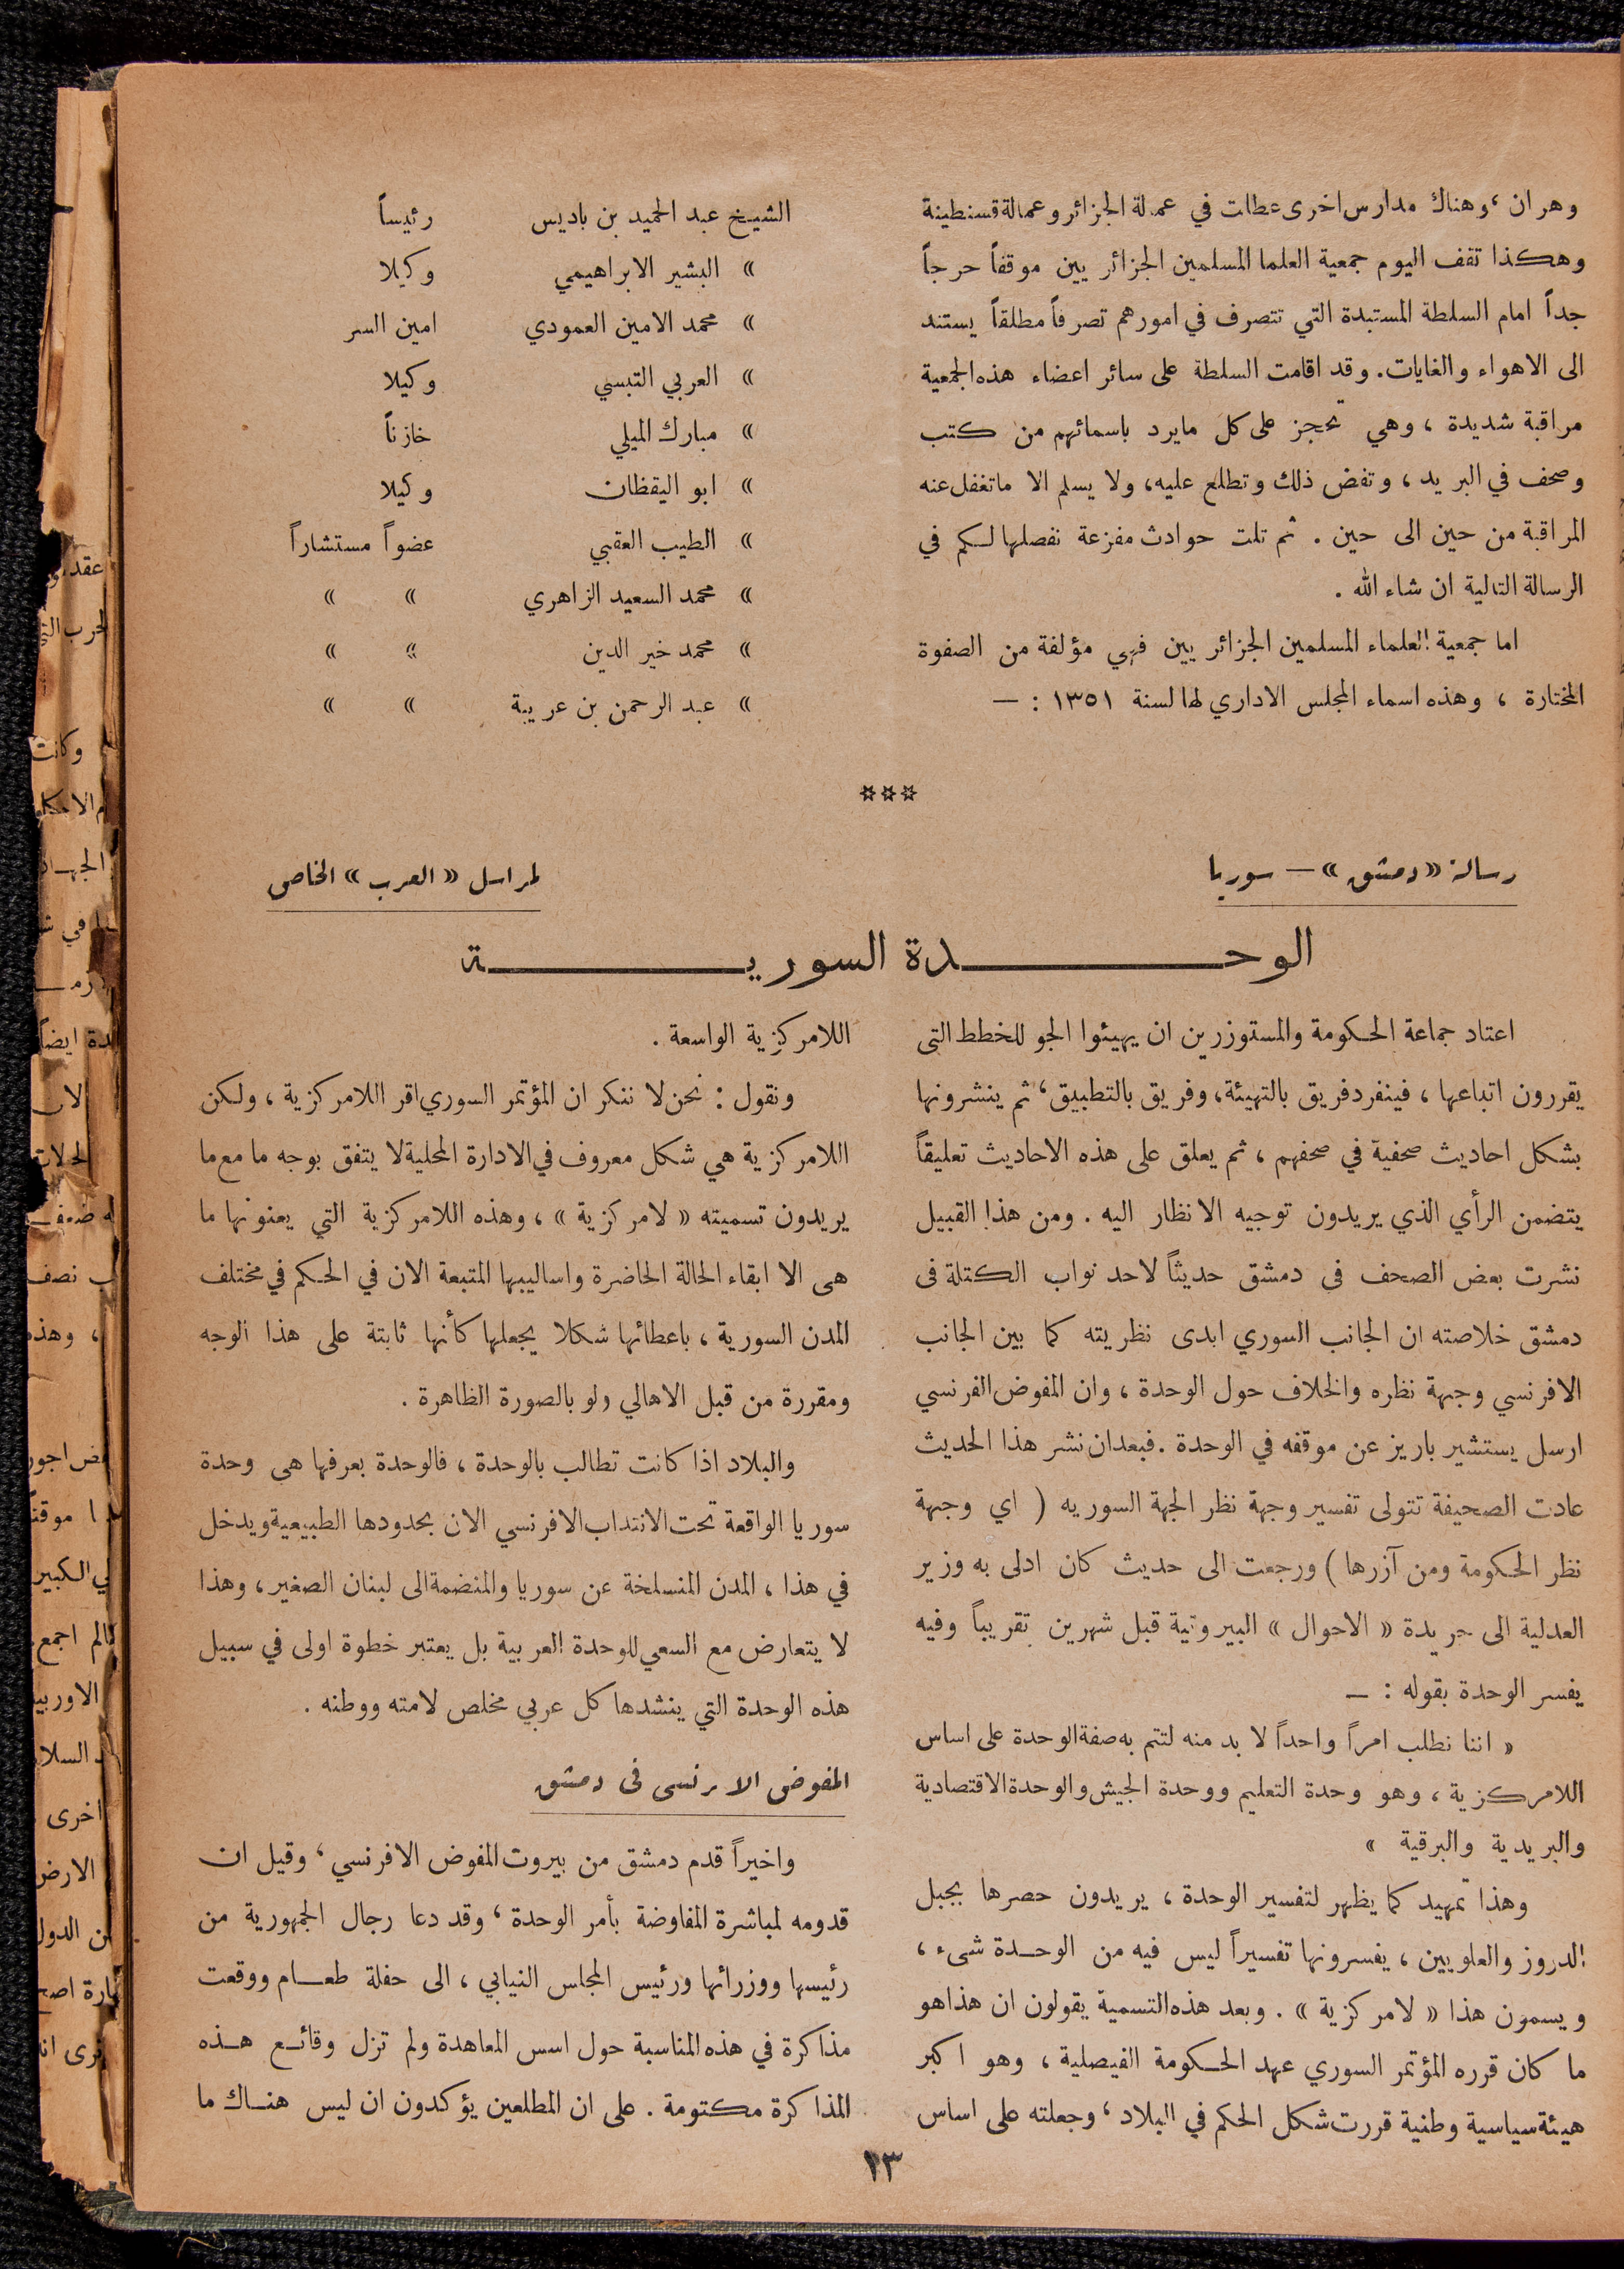 وهران، وهناك مدارس اخرى عطلت في عمالة الجزائر وعمالة قسنطينة
وهكذا تقف اليوم جمعية العلما المسلمين الجزائريين موقفاً حرجاً
جداً امام السلطة المستبدة التي تتصرف في امورهم تصرفاً مطلقاً يستند
الى الاهواء والغايات. وقد اقامت السلطة على سائر اعضاء هذه الجمعية
مراقبة شديدة ، وهي تحجز على كل مايرد باسمائهم من كتب
وصحف في البريد، وتفض ذلك وتطلع عليه، ولا يسلم الا ماتغفل عنه
المراقبة من حين الى حين . ثم تلت حوادث مفزعة نفصلها لكم في
الرسالة التالية ان شاء الله .
اما جمعية العلماء المسلمين الجزائريين فهي مؤلفة من الصفوة
المختارة ، وهذه اسماء المجلس الاداري لها لسنة ١٣٥١ : —
الشيخ عبد الحميد بن باديس رئيساً
» البشير الابراهيمي وكيلا
» محمد الامين العمودي امين السر
» العربي التبسي وكيلا
» مبارك الميلي خازناً
» ابو اليقظان وكيلا
» الطيب العقبي عضواً مستشاراً
» محمد السعيد الزاهري » »
» محمد خير الدين » »
» عبد الرحمن بن عريبة » »
***
رسالة «دمشق» — سوريا
لمراسل «العرب» الخاص
الوحدة السورية
اعتاد جماعة الحكومة والمستوزرين ان يهيئوا الجو للخطط التى
يقررون اتباعها ، فينفرد فريق بالتهيئة، وفريق بالتطبيق، ثم ينشرونها
بشكل احاديث صحفية في صحفهم ، ثم يعلق على هذه الاحاديث تعليقاً
يتضمن الرأي الذي يريدون توجيه الانظار اليه . ومن هذا القبيل
نشرت بعض الصحف فى دمشق حديثاً لاحد نواب الكتلة فى
دمشق خلاصته ان الجانب السوري ابدى نظريته كما بين الجانب
الافرنسي وجهة نظره والخلاف حول الوحدة ، وان المفوض الفرنسي
ارسل يستشير باريز عن موقفه في الوحدة . فبعدان نشر هذا الحديث
عادت الصحيفة تتولى تفسير وجهة نظر الجهة السوريه ( اي وجهة
نظر الحكومة ومن آزرها ) ورجعت الى حديث كان ادلى به وزير
العدلية الى جريدة « الاحوال » البيروتية قبل شهرين تقريباً وفيه
يفسر الوحدة بقوله : —
« اننا نطلب امراً واحداً لا بد منه لتتم به صفة الوحدة على اساس
اللامركزية ، وهو وحدة التعليم ووحدة الجيش والوحدة الاقتصادية
والبريدية والبرقية »
وهذا تمهيد كما يظهر لتفسير الوحدة ، يريدون حصرها بجبل
الدروز والعلويين ، يفسرونها تفسيراً ليس فيه من الوحدة شىء ،
ويسمون هذا « لامركزية » . وبعد هذه التسمية يقولون ان هذا هو
ما كان قرره المؤتمر السوري عهد الحكومة الفيصلية ، وهو اكبر
هيئة سياسية وطنية قررت شكل الحكم في البلاد ، وجعلته على اساس
اللامركزية الواسعة .
ونقول : نحن لا ننكر ان المؤتمر السوري اقر اللامركزية ، ولكن
اللامركزية هي شكل معروف في الادارة المحلية لا يتفق بوجه ما مع ما
يريدون تسميته « لامركزية » ، وهذه اللامركزية التي يعنونها ما
هى الا ابقاء الحالة الحاضرة واساليبها المتبعة الان في الحكم في مختلف
المدن السورية ، باعطائها شكلا يجعلها كأنها ثابتة على هذا الوجه
ومقررة من قبل الاهالي ولو بالصورة الظاهرة .
والبلاد اذا كانت تطالب بالوحدة ، فالوحدة بعرفها هى وحدة
سوريا الواقعة تحت الانتداب الافرنسي الان بحدودها الطبيعية ويدخل
في هذا ، المدن المنسلخة عن سوريا والمنضمة الى لبنان الصغير ، وهذا
لا يتعارض مع السعي للوحدة العربية بل يعتبر خطوة اولى في سبيل
هذه الوحدة التي ينشدها كل عربي مخلص لامته ووطنه .
المفوض الافرنسى فى دمشق
واخيراً قدم دمشق من بيروت المفوض الافرنسي ، وقيل ان
قدومه لمباشرة المفاوضة بأمر الوحدة ، وقد دعا رجال الجمهورية من
رئيسها ووزرائها ورئيس المجلس النيابي ، الى حفلة طعام ووقعت
مذاكرة في هذه المناسبة حول اسس المعاهدة ولم تزل وقائع هذه
المذاكرة مكتومة . على ان المطلعين يؤكدون ان ليس هناك ما
١٣